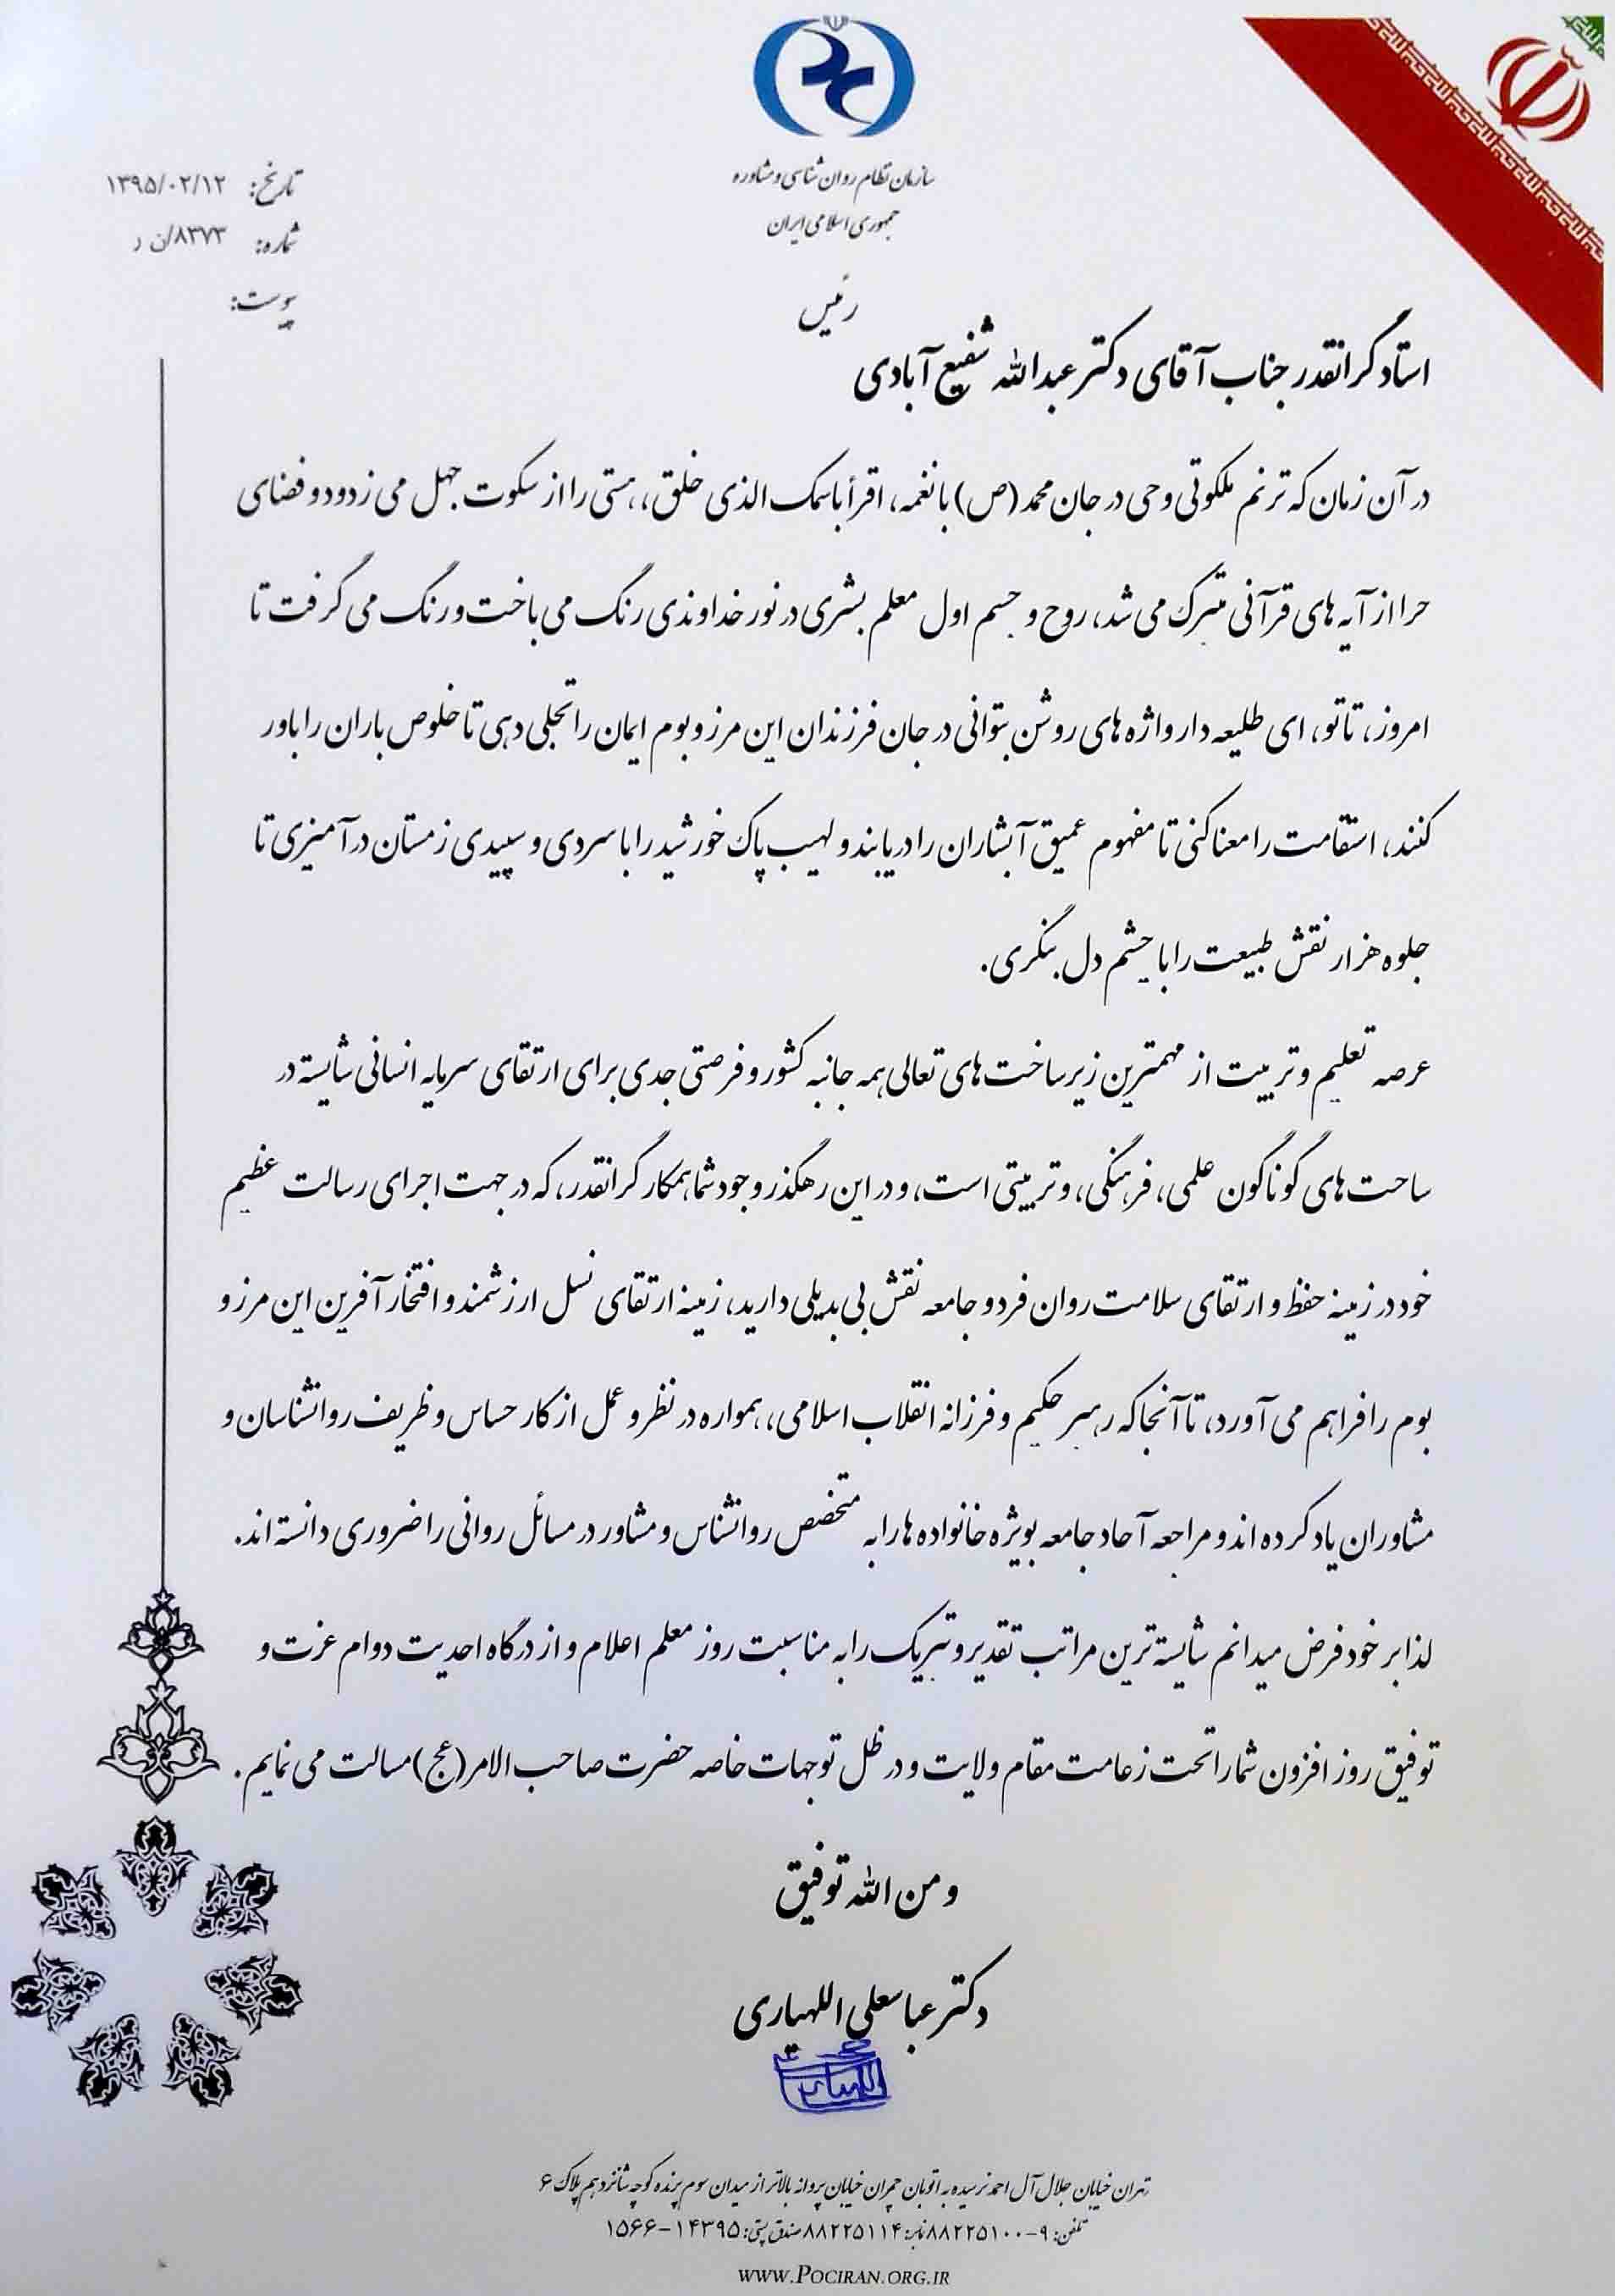 سازمان نظام روان شناسی و مشاوره
جمهوری اسلامی ایران
رئیس
تاریخ: ۱۳۹۵/۰۲/۱۲
شماره: ۸۳۷۳/ن ر
پیوست:
استاد گرانقدر جناب آقای دکتر عبدالله شفیع آبادی
در آن زمان که ترنم ملکوتی وحی در جان محمد (ص) با نغمه، اقرأ باسمک الذی خلق، هستی را از سکوت جهل می زدود و فضای
حرا از آیه های قرآنی متبرک می شد، روح و جسم اول معلم بشری در نور خداوندی رنگ می باخت و رنگ می گرفت تا
امروز، تا تو، ای طلیعه دار واژه های روشن بتوانی در جان فرزندان این مرز و بوم ایمان را تجلی دهی تا خلوص باران را باور
کنند، استقامت را معنا کنی تا مفهوم عمیق آبشاران را دریابند و لهیب پاک خورشید را با سردی و سپیدی زمستان درآمیزی تا
جلوه هزار نقش طبیعت را با چشم دل بنگری.
عرصه تعلیم و تربیت از مهمترین زیرساخت های تعالی همه جانبه کشور و فرصتی جدی برای ارتقای سرمایه انسانی شایسته در
ساحت های گوناگون علمی، فرهنگی، و تربیتی است، و در این رهگذر وجود شما همکار گرانقدر، که در جهت اجرای رسالت عظیم
خود در زمینه حفظ و ارتقای سلامت روان فرد و جامعه نقش بی بدیلی دارید، زمینه ارتقای نسل ارزشمند و افتخار آفرین این مرز و
بوم را فراهم می آورد، تا آنجا که رهبر حکیم و فرزانه انقلاب اسلامی، همواره در نظر و عمل از کار حساس و ظریف روانشناسان و
مشاوران یاد کرده اند و مراجعه آحاد جامعه بویژه خانواده ها را به متخصص روانشناس و مشاور در مسائل روانی را ضروری دانسته اند.
لذا بر خود فرض میدانم شایسته ترین مراتب تقدیر و تبریک را به مناسبت روز معلم اعلام و از درگاه احدیت دوام عزت و
توفیق روز افزون شما را تحت زعامت مقام ولایت و در ظل توجهات خاصه حضرت صاحب الامر (عج) مسالت می نمایم.
و من الله توفیق
دکتر عباسعلی اللهیاری
تهران خیابان جلال آل احمد نرسیده به اتوبان چمران خیابان پروانه بالاتر از میدان سوم پرنده کوچه شانزدهم پلاک ۶
تلفن: ۹-۸۸۲۲۵۱۰۰ نمابر: ۸۸۲۲۵۱۱۴ صندق پستی: ۱۴۳۹۵-۱۵۶۶
WWW.POCIRAN.ORG.IR